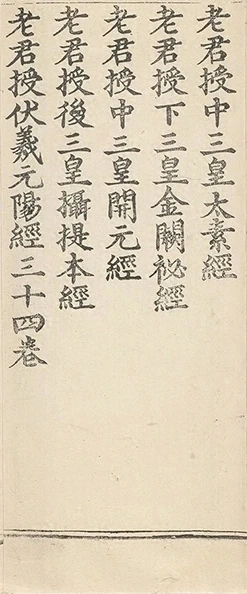 老君授中三皇太素經
老君授下三皇金闕祕經
老君授中三皇開元經
老君授後三皇攝提本經
老君授伏羲元陽經三十四卷